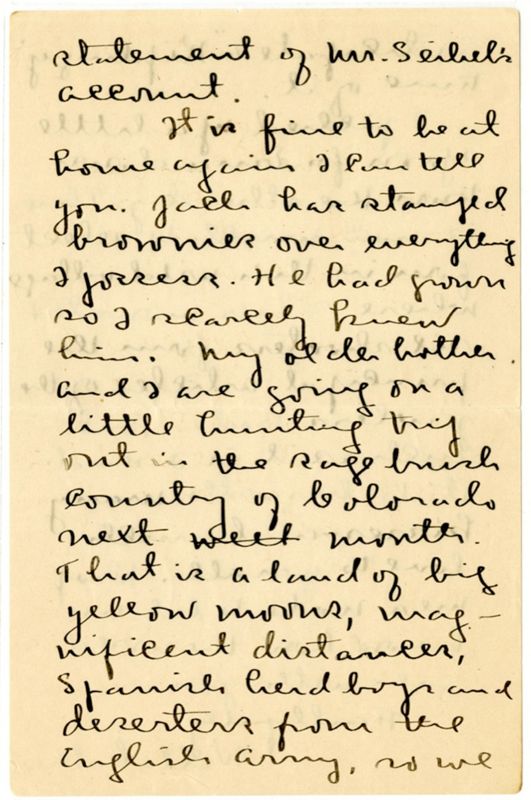 statement of Mr. Seibel's
account.
It is fine to be at
home again I can tell
you. Jack has stamped
brownies over everything
I possess. He had grown
so I scarcely knew
him. My older brother
and I are going on a
little hunting trip
out in the sage brush
country of Colorado
next week month.
That is a land of big
yellow moons, mag-
nificent distances,
Spanish herd boys and
deserters from the
English army, so we